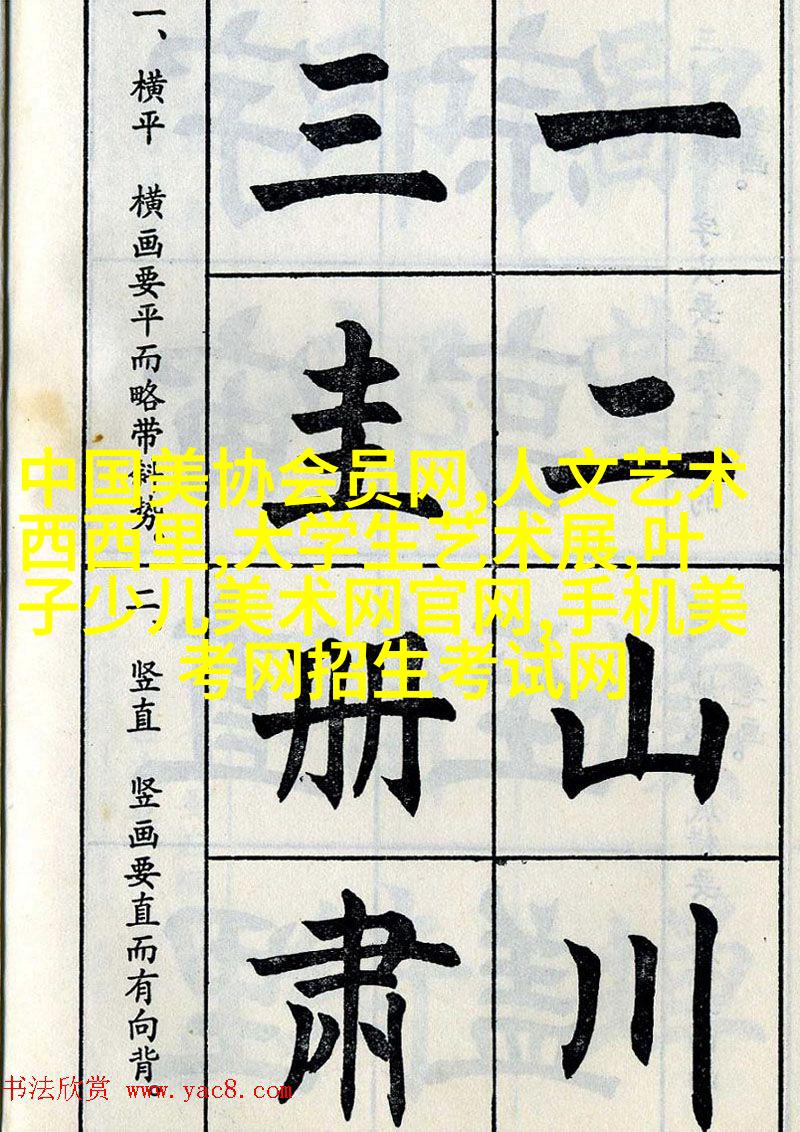 一
二
山
川
三
圭
册
肃
一、横平　横画要平而略带斜势。
二、竖直　竖画要直而有向背。
中国美协会员网,人文艺术
西西里,大学生艺术展,叶
子少儿美术网官网,手机美
考网招生考试网
书法欣赏 www.yac8.com